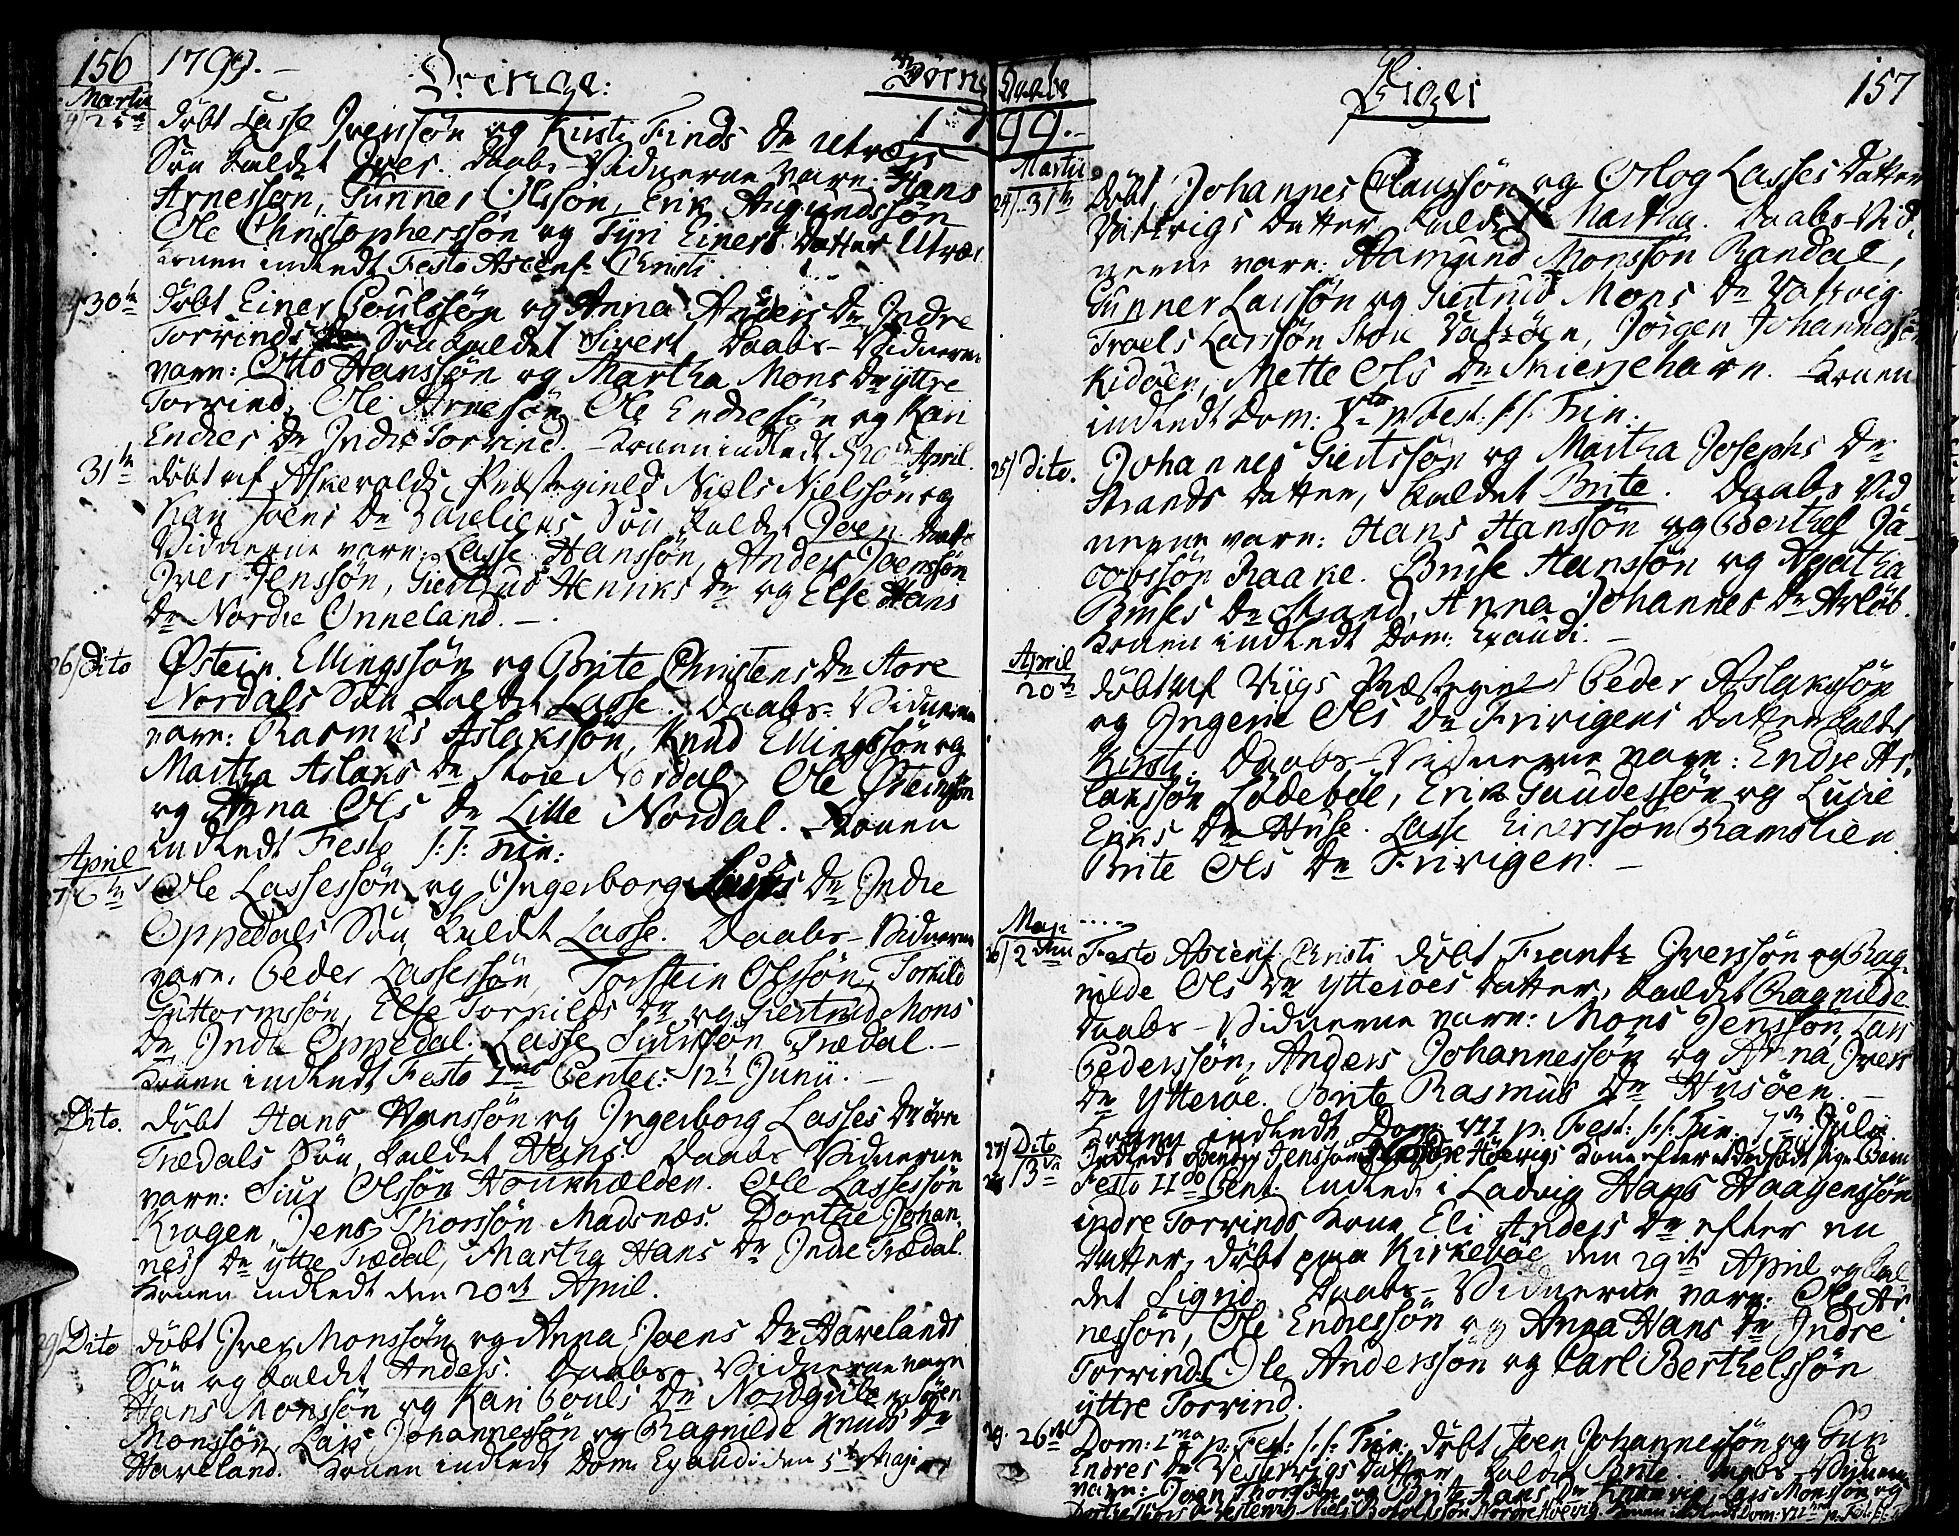 156 1799. — Drenge: Børns
Martii
25de døbt Lasse Iverssøn og Kirsti Finds Dr Utvær
Søn kaldet Iver. Daabs-Vidnerne vare: Hans
Arnessøn, Gunner Olssøn, Erik Augundssøn
Ole Christopherssøn og Tyri Einers Datter Utvær
konen indledt Festo Ascens: Christi.
30te døbt Einer Poulssøn og Anna Anders Dr Indre
Torvinds Søn kaldet Sivert. Daabs-Vidnerne
vare: Otto Hanssøn og Martha Mons Dr yttre
Torvind, Ole Arnesøn, Ole Endresøn og Kari
Endres Dr Indre Torvind. – konen indledt 20de April.
31te døbt af Askevolds Præstegield Niels Nielssøn og
Kari Joens Dr Søn kaldet Joen. Daabs
Vidnerne vare: Lasse Hanssøn, Anders Joenssøn
Iver Jenssøn, Giertrud Henriks Dr og Else Hans
Dr Nordre Onneland. —
26/ Dito Østein Ellingssøn og Brite Christens Dr Store
Nordals Søn kaldet Lasse. Daabs-Vidnerne
vare: Rasmus Aslakssøn, Knud Ellingssøn og
Martha Aslaks Dr Store Nordal, Ole Østeinssøn
og Anna Ols Dr Lille Nordal. Konen
indledt Festo S: S: Trin:
April
27/ 6te Ole Lassessøn og Ingerborg Dr Indre
Oppedals Søn kaldet Lasse. Daabs-Vidnerne
vare: Peder Lassessøn, Torstein Olssøn, Torkild
Guttormssøn, Else Torkilds Dr og Giertrud Mons
Dr Indre Oppedal. Lasse Siurssøn Trædal. —
konen indledt Festo 1mo Pentec: 12te Junii. —
Dito. døbt Hans Hanssøn og Ingerborg Lasses Dr øvre
Trædals Søn kaldet Hans. Daabs Vidnerne
vare: Siur Olssøn Ole Lassessøn
Kragen, Jens Thorssøn Madsnæs. Dorthe Johan-
nes Dr yttre Trædal, Martha Hans Dr Indre Trædal.
konen indledt den 20de April.
29/ Dito døbt Iver Monssøn og Anna Joens Dr Havelands
Søn og kaldet Anders. Daabs-Vidnerne vare
Hans Monssøn og Kari Pouls Dr Nordgule og
Monssøn, Lars Johannessøn og Ragnilde Knuds Dr
Haveland. konen indledt Dom: Exaudi den 5te Maji
Daabe Piger 157
99.—
Martii
24/ 31te Døbt Johannes Claussøn og Oslog Lasses Datter
Vattvigs Datter, kaldet Martha. Daabs-Vid-
nerne vare: Aamund Monssøn Randal,
Gunner Larssøn og Giertrud Mons Dr Vattvig
Troels Larssøn Jørgen Johannessøn
Kidøen, Mette Ols Dr Skierjehavn. konen
indledt Dom: Vta p Fest: S: S: Trin:
25/ Dito. Johannes Giertssøn og Martha Josephs Dr
Strands Datter, kaldet Brite. Daabs Vid
nerne vare: Hans Hanssøn og Berthel Ja-
cobssøn Raake. Bruse Hanssøn og Agatha
Bruses Dr Strand, Anna Johannes Dr
Konen indledt Dom: Exaudi. —
April
20de døbt af Viigs Præstegield Peder Aslakssøn
og Ingerie Ols Dr Frivigens Datter kaldet
Kirsti. Daabs-Vidnerne vare: Endre As-
lakssøn Endre Erik Gaudessøn og Lucie
Eriks Dr Huse. Lasse Einerssøn Ramslien
Brite Ols Dr Frivigen. —
Maji
26/ 2den Festo Ascens: Christi døbt Frantz Iverssøn og Rag-
nilde Ols Dr Ytterøes Datter, kaldet Ragnilde
Daabs-Vidnerne vare: Mons Jenssøn, Lars
Pederssøn, Anders Johannessøn og Anna Ivers
Dr Ytterøe. Brite Rasmus Dr Husøen. —
Konen indledt Dom: VII p: Fest: S: S: Trin. 7de Julii
27/ Dito Indledt Jenssøn Kone efter et dødfødt Pige Barn
13de Festo IIdo Pent: indledt i Ladvig Hans Haagenssøn
indre Torvinds kone Eli Anders Dr efter en
Datter, døbt paa Kirkebøe den 29de April og kal-
det Sigrid. Daabs-Vidnerne vare: Ole Ar
nessøn, Ole Endressøn og Anna Hans Dr Indre
Torvind. Ole Anderssøn og Carl Berthelssøn
yttre Torvind.
29. 26de Dom: 1ma p: Fest: S: S: Trin: døbt Joen Johannessøn og Guri
Endres Dr Vestervigs Datter kaldet Brite. Daabs-Vidnerne
vare: Joen Thorssøn og Brite Hans Dr Lars Monssøn og